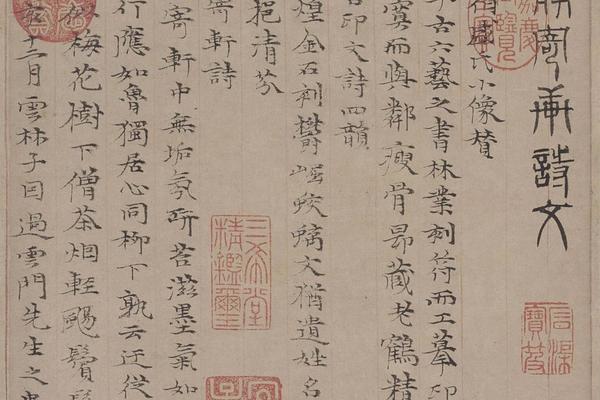 寄軒詩文
盛氏小像贊
古六藝之書林業刻符而工摹印
寞而與鄰瘦骨昂藏老鶴精
印文詩四韻
煌金石刻欝崛蛟螭文猶遺姓名
挹清芬
寄軒詩
寄軒中無垢氛研苔滋墨氣如
行應如魯獨居心同柳下孰云迂從
梅花樹下僧茶烟輕颺鬢
十二月雲林子因過雲門先生之
三希堂
精鑑璽